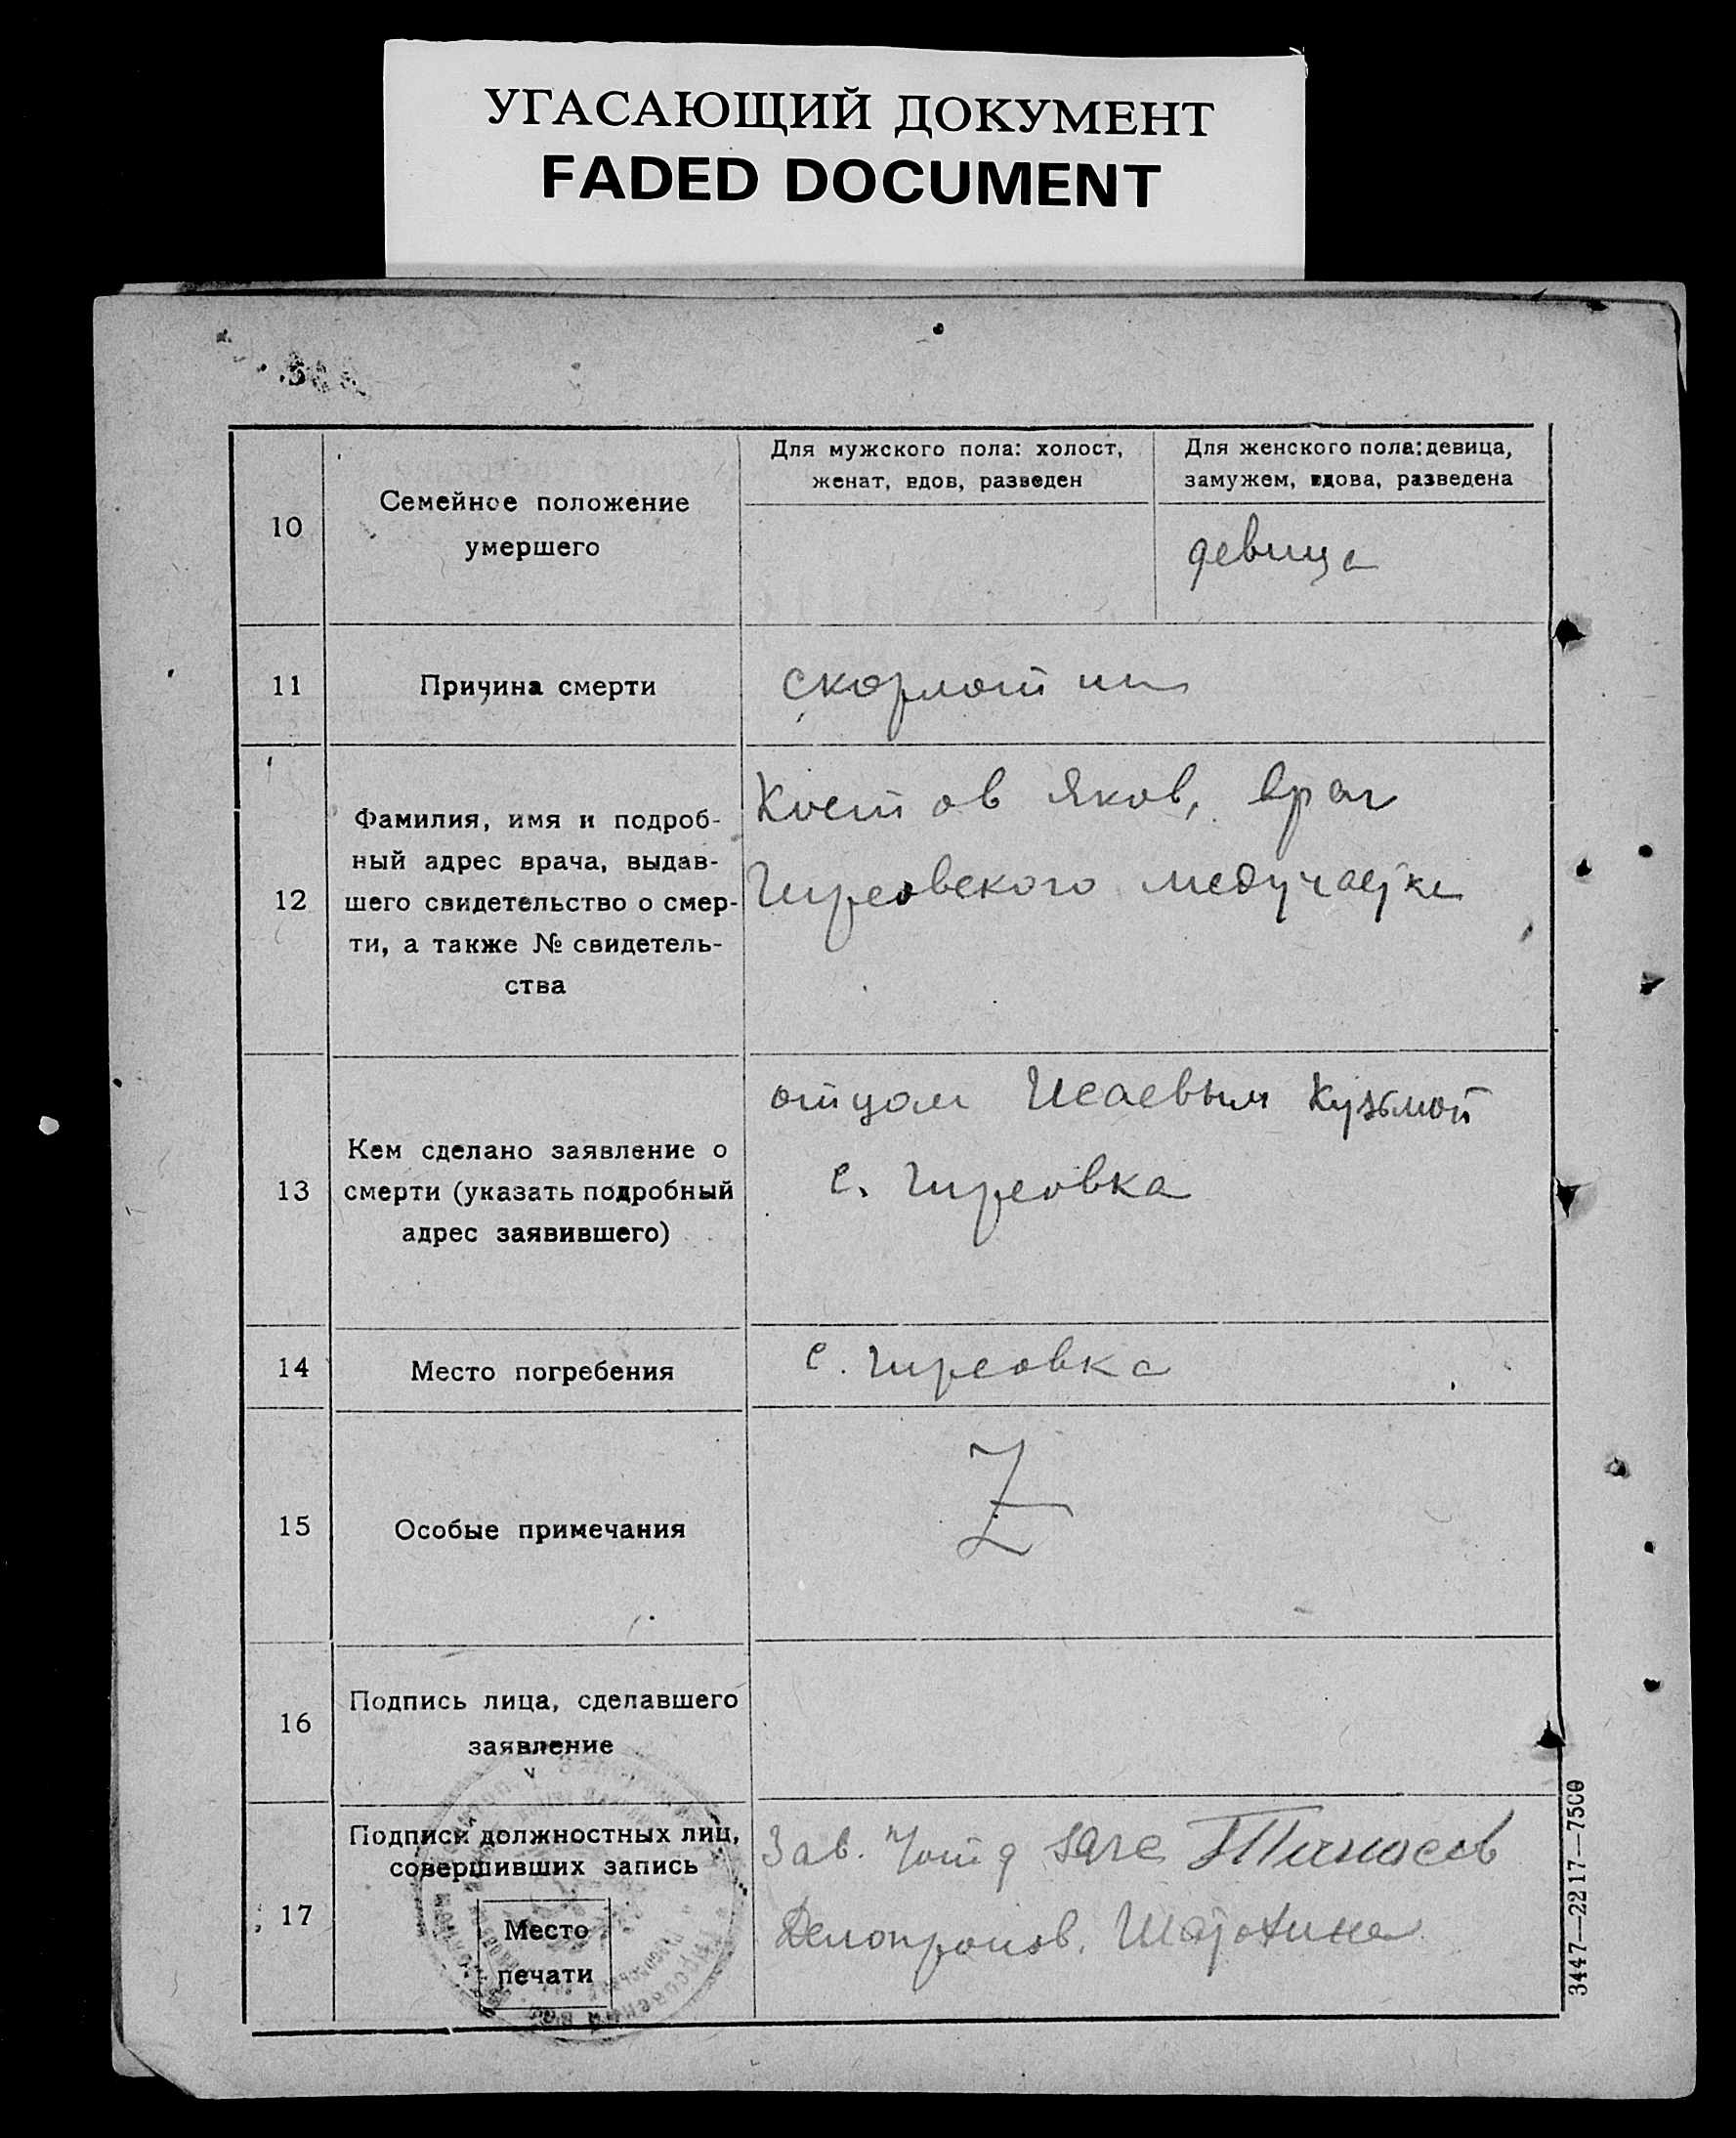 УГАСАЮЩИЙ ДОКУМЕНТ
FADED DOCUMENT
10
Семейное положение
умершего
Для мужского пола: холост,
женат, вдов, разведен
Для женского пола: девица,
замужем, вдова, разведена
девица
11
Причина смерти
скорлотина
12
Фамилия, имя и подроб-
ный адрес врача, выдав-
шего свидетельство о смер-
ти, а также № свидетель-
ства
Костов Яков, врач
Гирсовского медучастка
13
Кем сделано заявление о
смерти (указать подробный
адрес заявившего)
отцом Исаевым Кузьмой
с. Гирсовка
14
Место погребения
с. Гирсовка
15
Особые примечания
Z
16
Подпись лица, сделавшего
заявление
17
Подписи должностных лиц,
совершивших запись
Место
печати
Зав.
Делопроизв.
3447—2217—7500